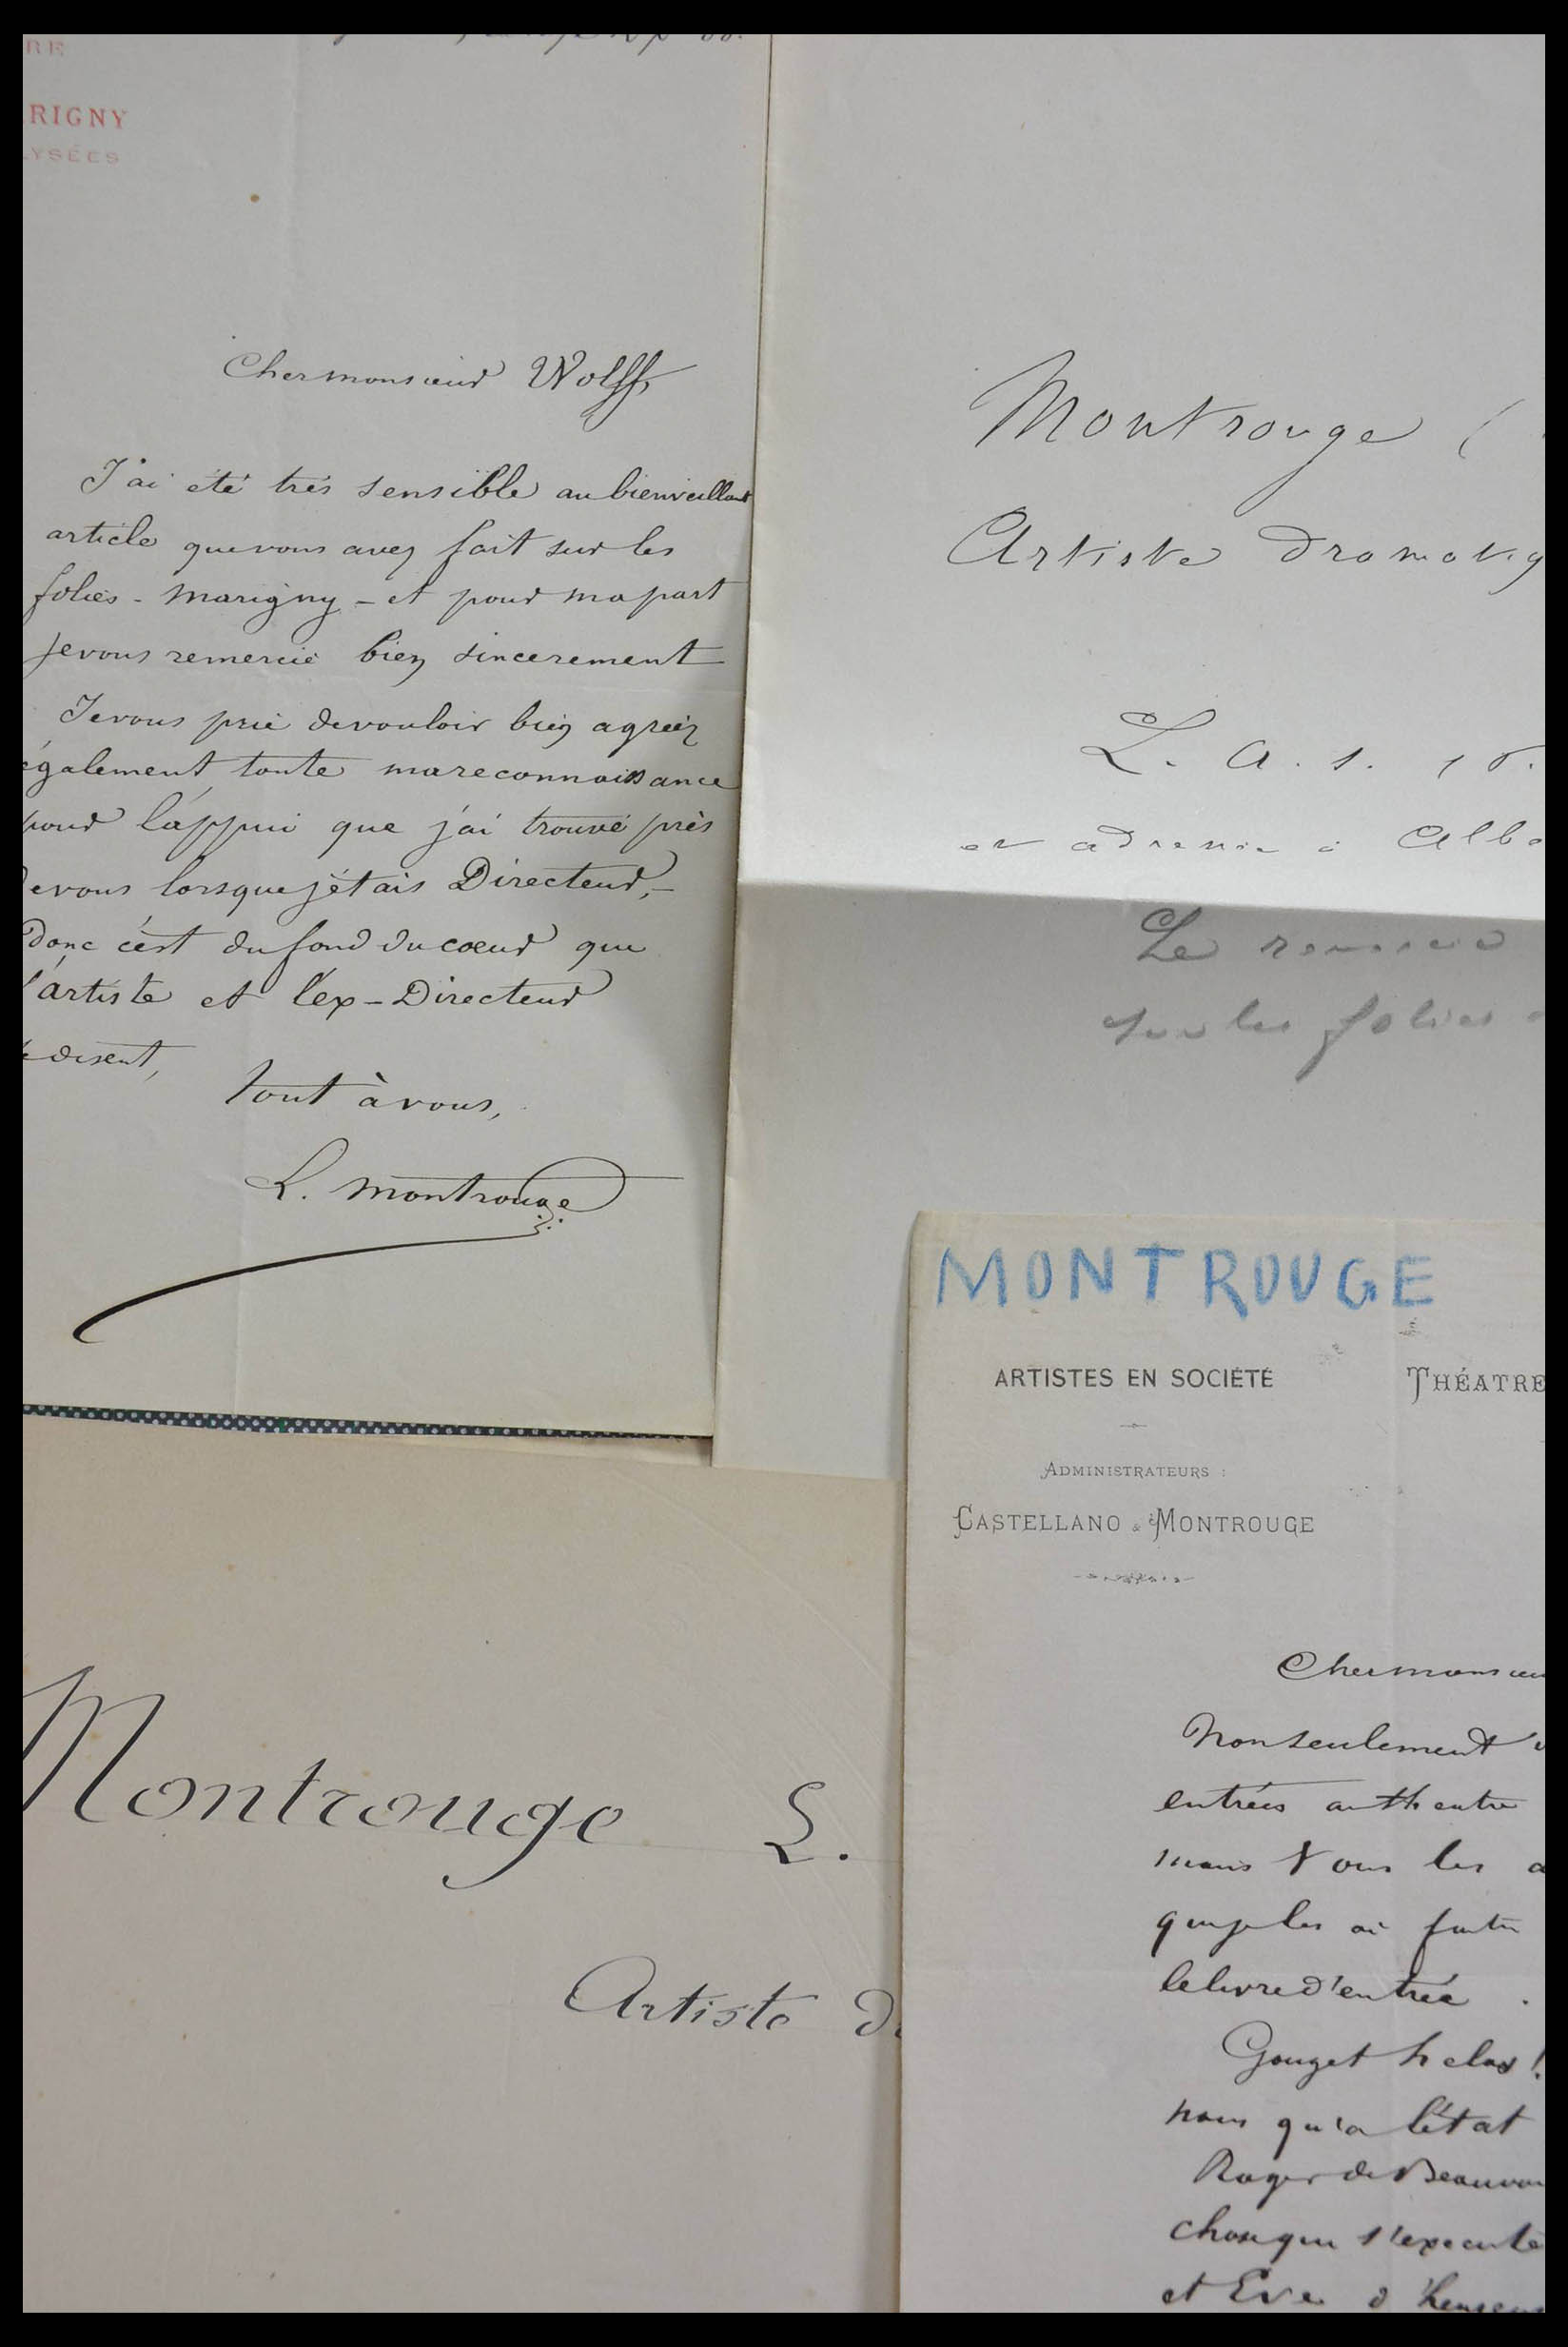 RE
RIGNY
LYSÉES
Cher monsieur Wolff,
J'ai été très sensible au bienveillant
article que vous avez fait sur les
folies-marigny - et pour ma part
je vous remercie bien sincerement
Je vous prie de vouloir bien agréer
également toute ma reconnaissance
pour l'appui que j'ai trouvé près
de vous lorsque j'étais Directeur,-
Donc c'est du fond du coeur que
l'artiste et l'ex-Directeur
disent,
tout à vous,
L. montrouge
Montrouge (
Artiste dramatiq
L. a. s.
et adressée à Alb
Le remercie
sur les folies
Montrouge L.
Artiste d
MONTROUGE
ARTISTES EN SOCIÉTÉ
THÉATRE
ADMINISTRATEURS :
CASTELLANO & MONTROUGE
Cher monsieu
Non seulement v
entrées au theatre
mais vous les a
que je les ai
le livre d'entrée .
Gouget helas !
nous qu'a l'état
Roger de Beauvoi
chose qui s'execute
et Eve d'